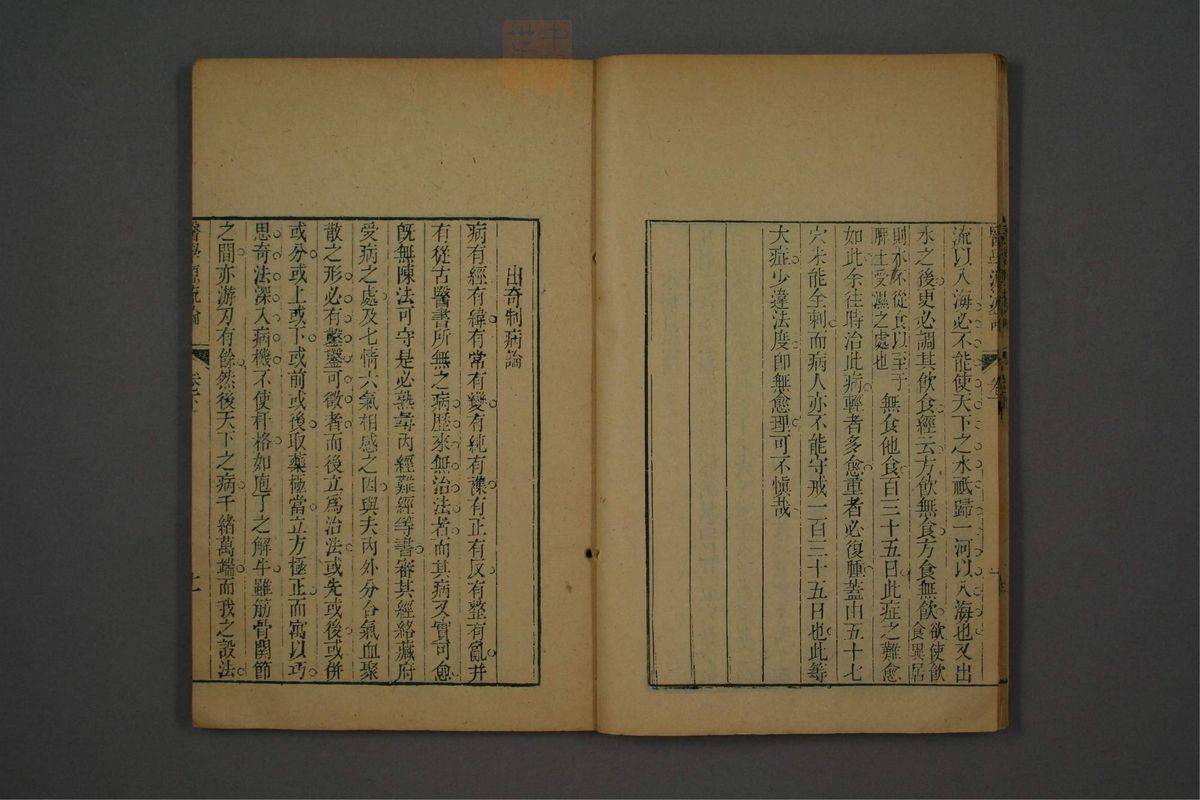 流以入海必不能使天下之水祗歸一河以入海也又出
水之後更必調其飲食經云方飲無食方食無飲欲使飲食異居
則水不從食以至于脾土受濕之處也無食他食百三十五日此症之難愈
如此余往時治此病輕者多愈重者必復腫蓋由五十七
穴未能全刺而病人亦不能守戒一百三十五日也此等
大症少違法度即無愈理可不愼哉
出奇制病論
病有經有緯有常有變有純有襍有正有反有整有亂并
有從古醫書所無之病歷來無治法者而其病又實可愈
旣無陳法可守是必熟尋內經難經等書審其經絡藏府
受病之處及七情六氣相感之因與夫內外分合氣血聚
散之形必有鑿鑿可徵者而後立爲治法或先或後或併
或分或上或下或前或後取藥極當立方極正而寓以巧
思奇法深入病機不使扞格如庖丁之解牛雖筋骨關節
之間亦游刃有餘然後天下之病千緒萬端而我之設法
醫學源流論